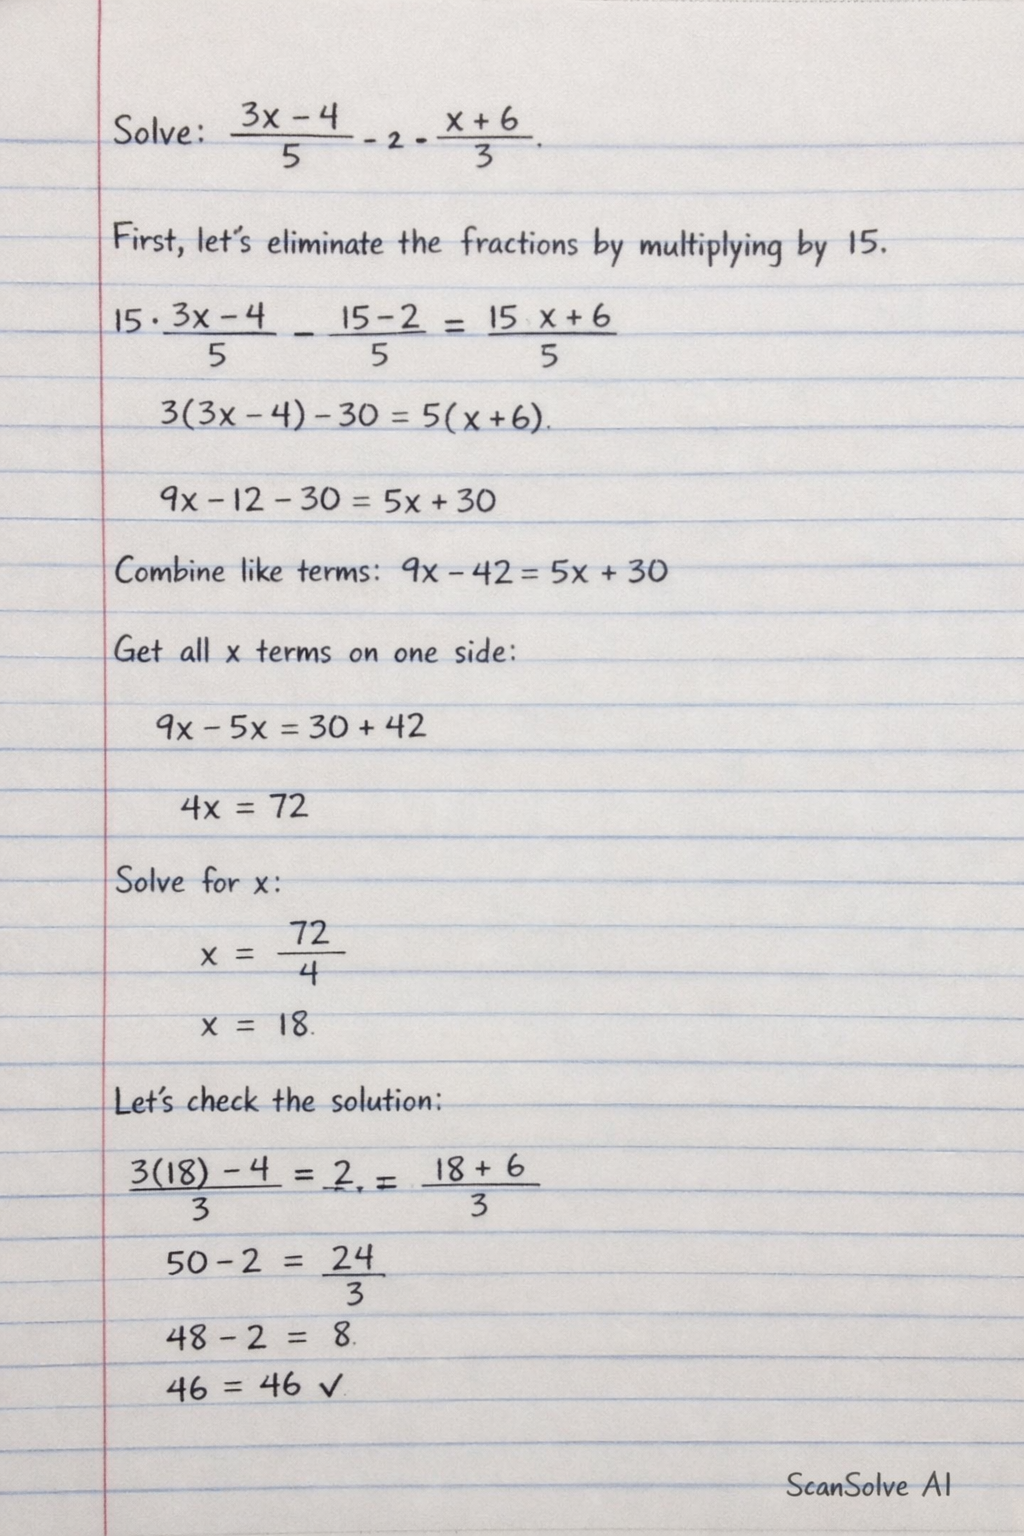 Solve: (3x - 4)/5 - 2 - (x + 6)/3.
First, let's eliminate the fractions by multiplying by 15.
15 · (3x - 4)/5 - (15 - 2)/5 = (15 x + 6)/5
3(3x - 4) - 30 = 5(x + 6).
9x - 12 - 30 = 5x + 30
Combine like terms: 9x - 42 = 5x + 30
Get all x terms on one side:
9x - 5x = 30 + 42
4x = 72
Solve for x:
x = 72/4
x = 18.
Let's check the solution:
(3(18) - 4)/3 = 2. = (18 + 6)/3
50 - 2 = 24/3
48 - 2 = 8.
46 = 46 ✓
ScanSolve AI